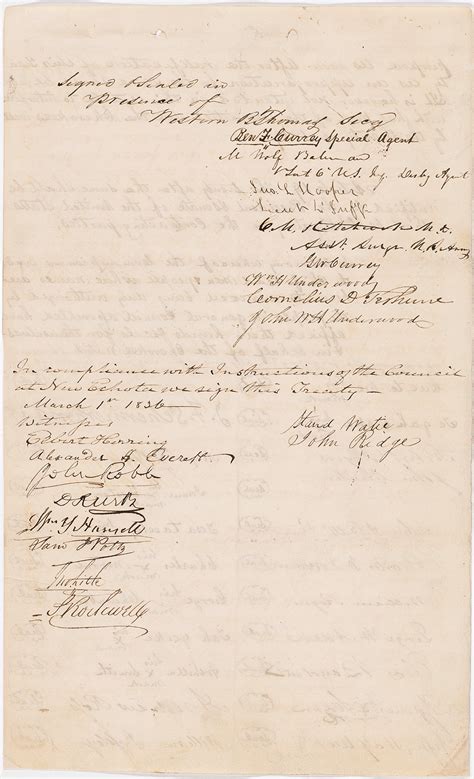 Signed & Sealed in
Presence of
Western B Thomas Secy
Ben F. Currey Special Agent
M Wolf Bateman
1st Lt 6th U.S. Iy. Disbg Agent
Jno. L Hooper
Lieut 4th Inft
C. M. Hitchcock M. D.
Asst. Surgn U.S. Army
G W Currey
Wm H Underwood
Cornelius D Terhune
John W H Underwood
In compliance with Instructions of the Council
at New Echota we sign this Treaty -
March 1st 1836
Witnesses
Stand Watie
John Ridge
Elbert Herring
Alexander H. Everett
John Robb
D Kurtz
Wm Y. Hansell
Saml J Potts
Jno Litle
S. Rockwell